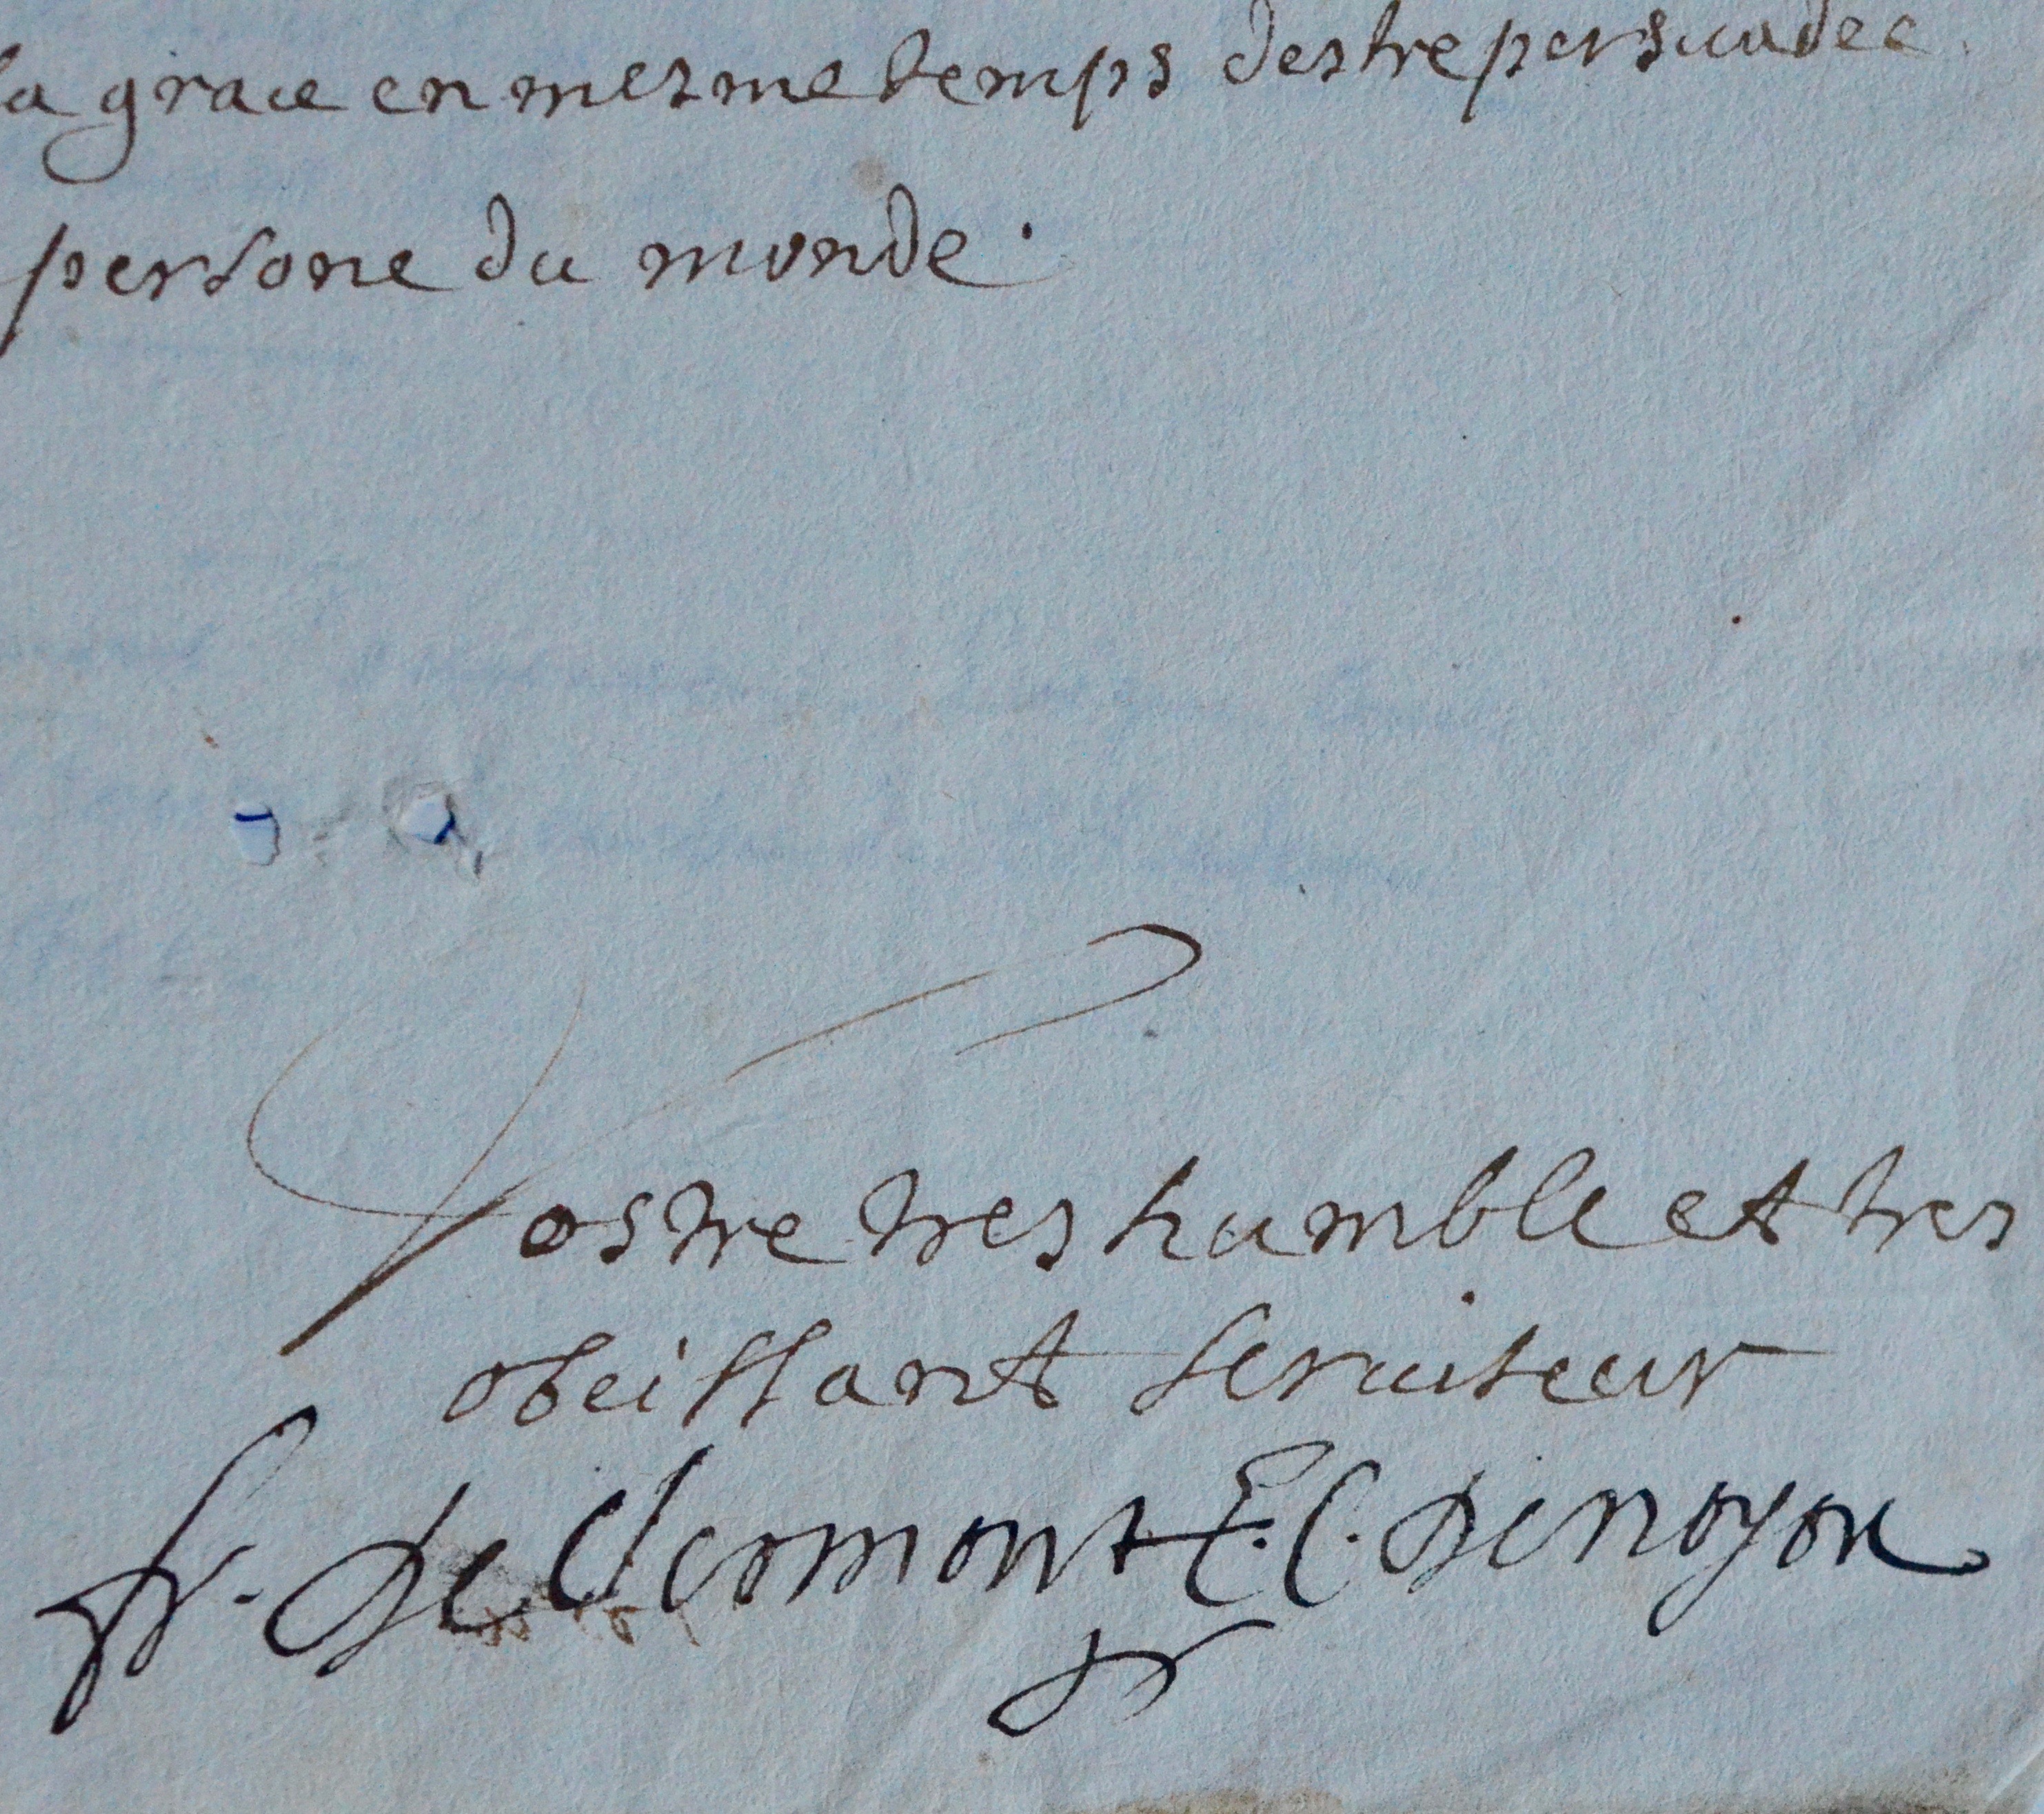 la grace en mesme temps destre persuadee
persone du monde.
Vostre tres humble et tres
obeissant seruiteur
fr. De Clermont E. C. De noyon